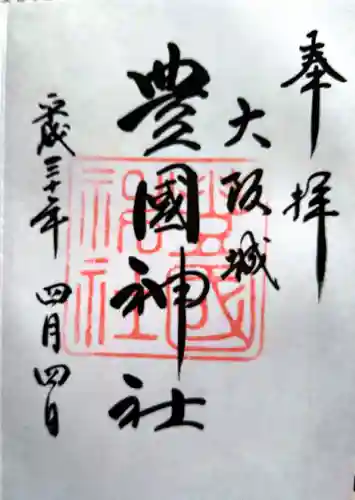 奉拝
大阪城
豊國神社
平成三十年四月四日